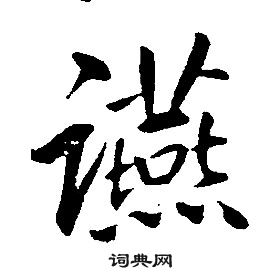 讌
词典网